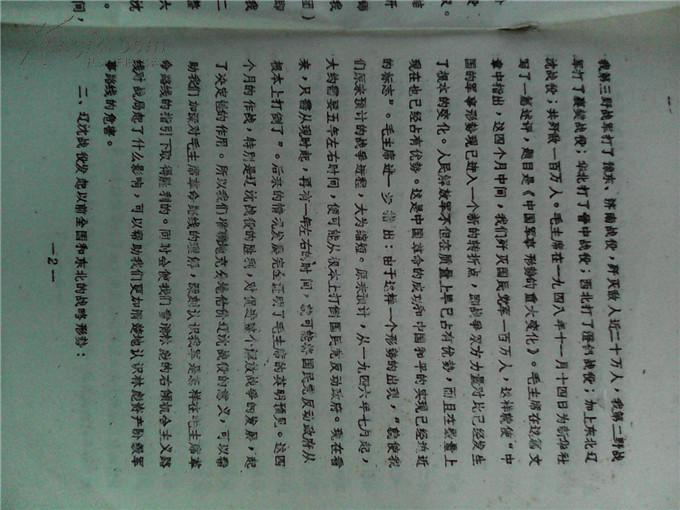 我第三野战军打了豫东、济南战役，歼灭敌人近二十万人，我第二野战
军打了襄樊战役；华北打了晋中战役；西北打了澄郃战役；加上东北辽
沈战役；共歼敌一百万人。毛主席在一九四八年十一月十四日为新华社
写了一篇述评，题目是《中国军事形势的重大变化》。毛主席在这篇文
章中指出，这四个月中间，我们歼灭国民党军一百万人，这样就使“中
国的军事形势现已进入一个新的转折点，即战争双方力量对比已经发生
了根本的变化。人民解放军不但在质量上早已占有优势，而且在数量上
现在也已经占有优势。这是中国革命的成功和中国和平的实现已经迫近
的标志”。毛主席进一步指出：由于这样一个形势的出现，“就使我
们原来预计的战争进程，大为缩短。原来预计，从一九四六年七月起，
大约需要五年左右时间，便可能从根本上打倒国民党反动政府。现在看
来，只需从现时起，再有一年左右的时间，就可能将国民党反动政府从
根本上打倒了”。后来的情况发展完全证明了毛主席的英明预见。这四
个月的作战，特别是辽沈战役的胜利，对促进整个解放战争的发展，起
了决定性的作用。所以我们准确地充分地估价辽沈战役的意义，可以帮
助我们加深对毛主席革命路线的理解，深刻认识我军是怎样在毛主席革
命路线的指引下取得胜利的。同时会使我们看清林彪的右倾机会主义路
线对战局起了什么影响，可以帮助我们更加清楚地认识林彪资产阶级军
事路线的危害。
二、辽沈战役发起以前全国和东北的战略形势：
—2—